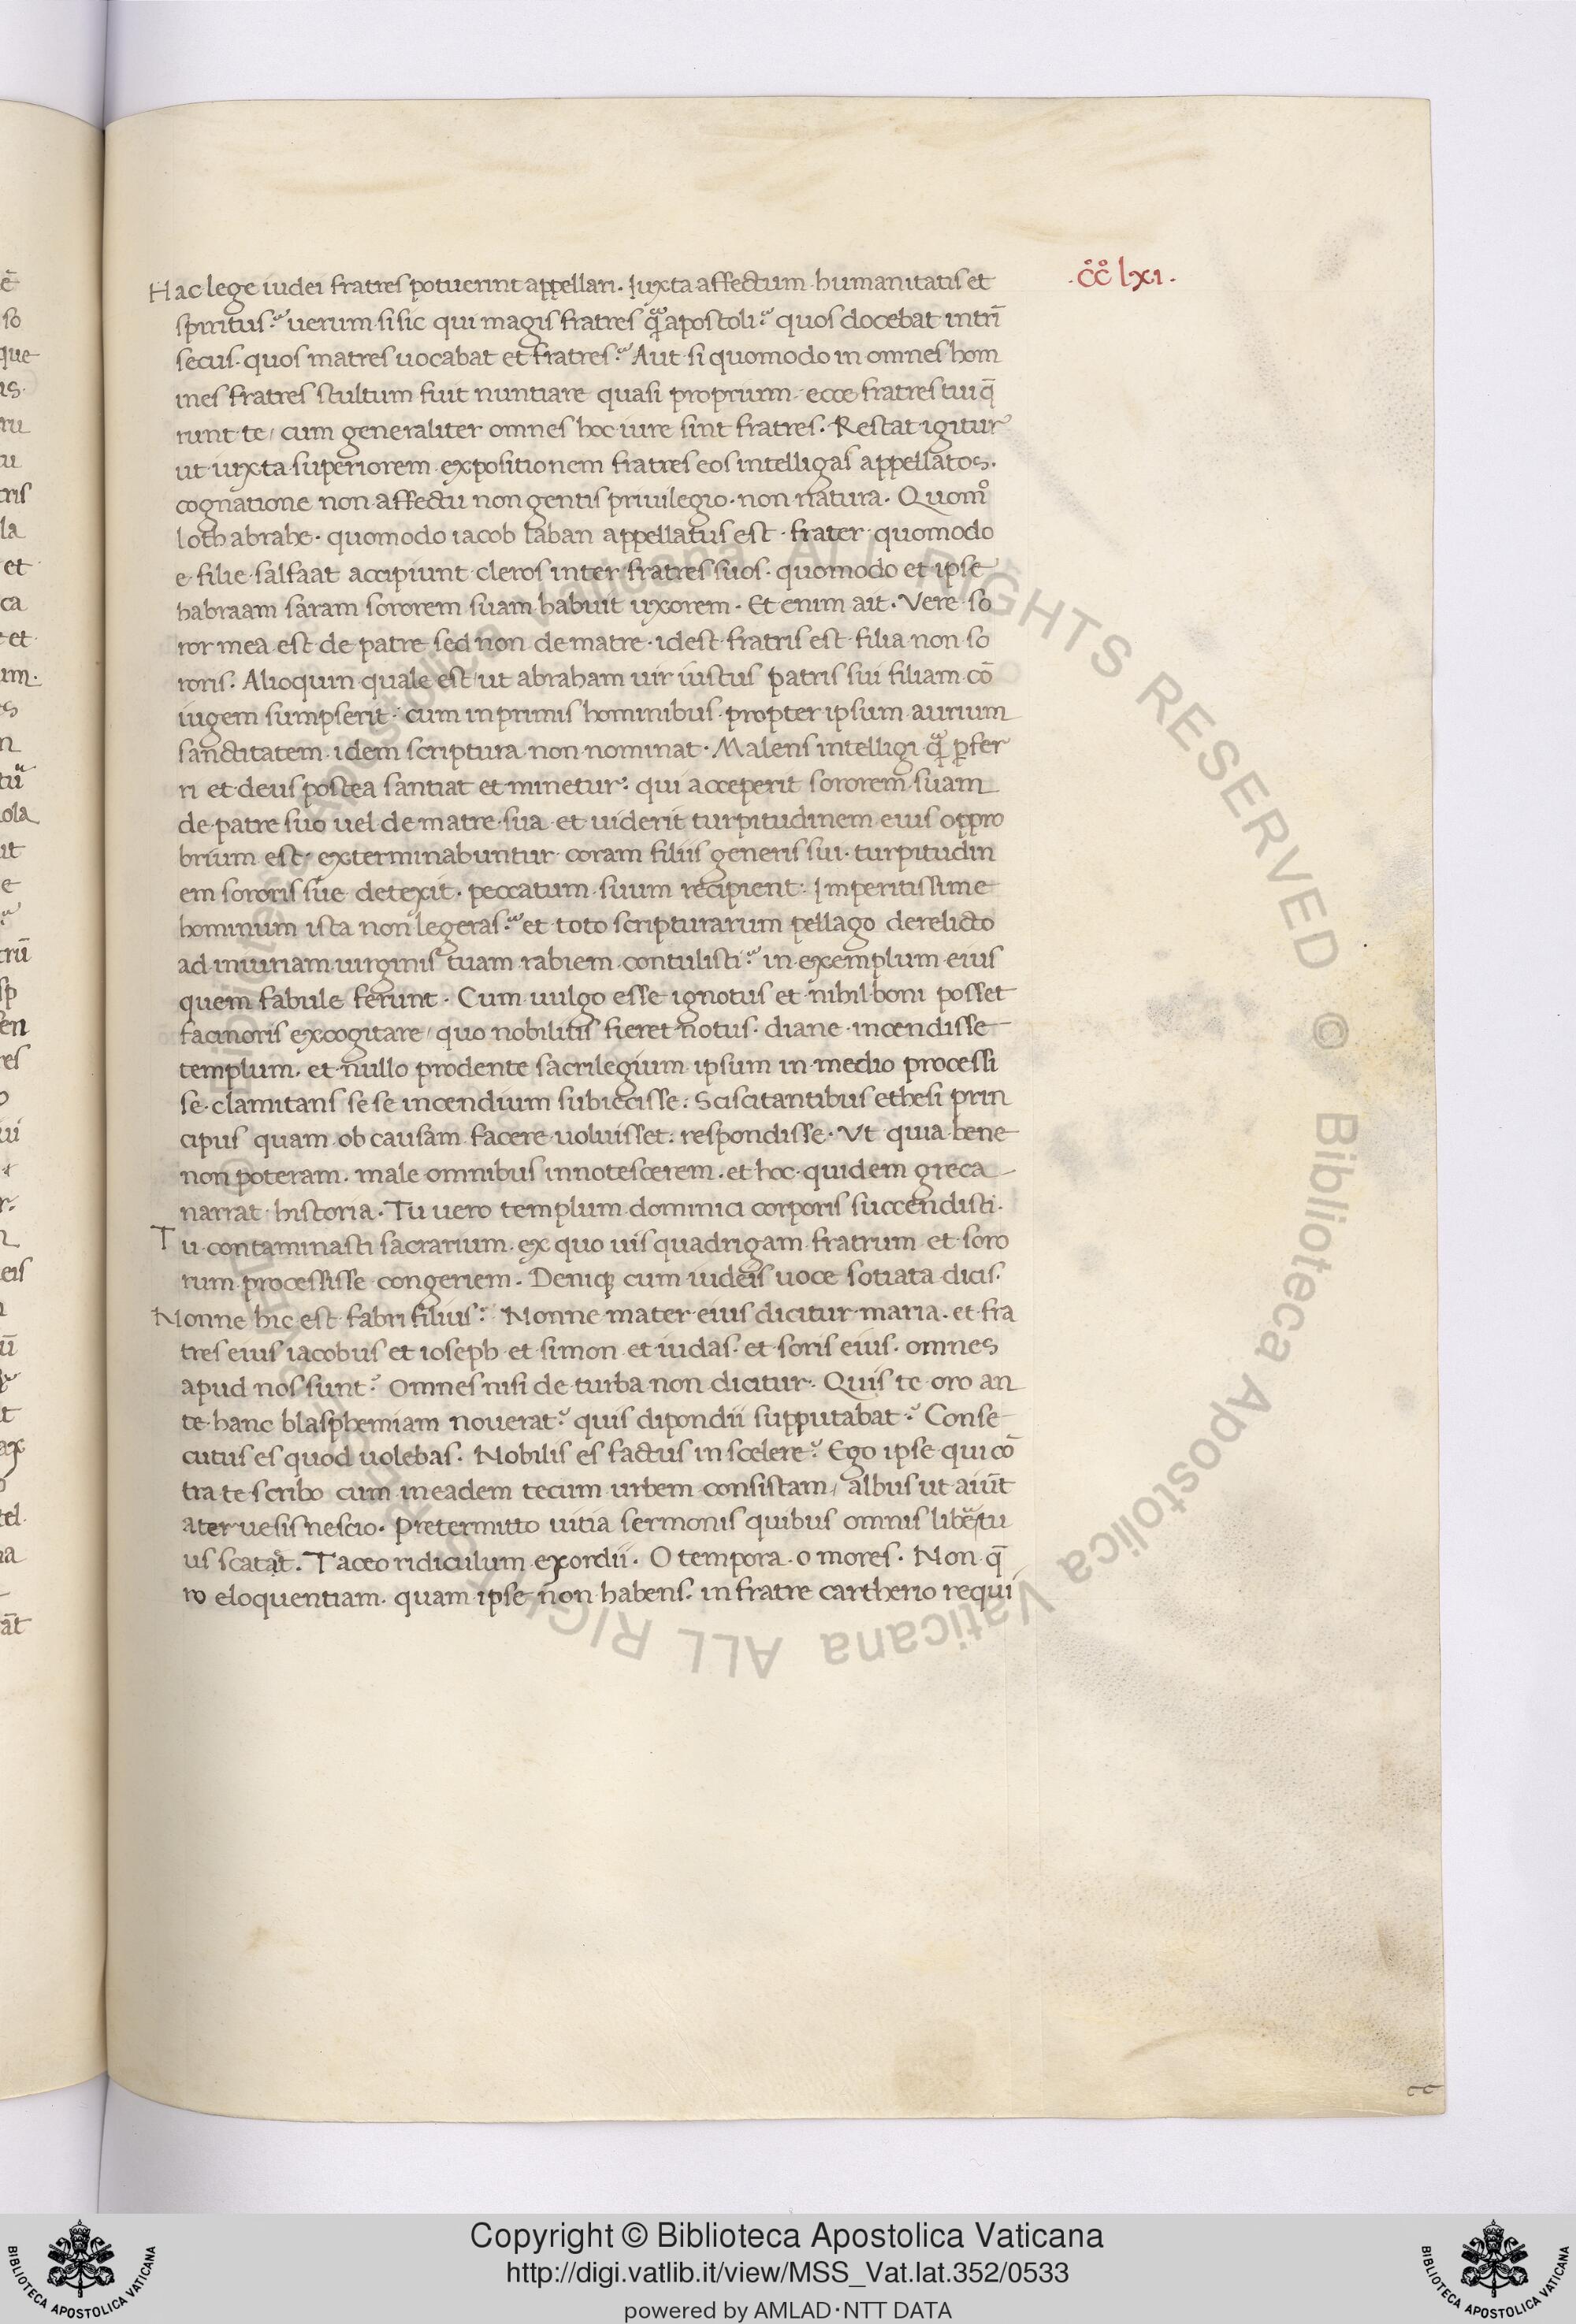 .CC LXI.
Hac lege iudei fratres potuerint appellari. Iuxta affectum humanitatis et
spiritus? uerum si sic qui magis fratres q̃ apostoli? quos docebat intrĩ
secus. quos matres uocabat et fratres? Aut si quomodo in omnes hom
ines fratres stultum fuit nuntiare quasi proprium. ecce fratres tui q̄
runt te/ cum generaliter omnes hoc iure sint fratres. Restat igitur
ut iuxta superiorem expositionem fratres eos intelligas appellatos.
cognatione non affectu non gentis priuilegio. non natura. Quomº
loth abrahe. quomodo iacob laban appellatus est. frater quomodo
e filie salfaat accipiunt cleros inter fratres suos. quomodo et ipse
habraam saram sororem suam habuit uxorem. Et enim ait. Vere so
ror mea est de patre sed non de matre. idest fratris est filia non so
roris. Alioquin quale est/ ut abraham uir iustus patris sui filiam cō
iugem sumpserit: cum in primis hominibus propter ipsum aurium
sanctitatem idem scriptura non nominat. Malens intelligi q̃ p̄fer
ri et deus postea santiat et minetur: qui acceperit sororem suam
de patre suo uel de matre sua et uiderit turpitudinem eius oppro
brium est. exterminabuntur coram filiis generis sui. turpitudin
em sororis sue detexit. peccatum suum recipient. Imperitissime
hominum ista non legeras? et toto scripturarum pellago derelicto
ad iniuriam uirginis tuam rabiem contulisti? in exemplum eius
quem fabule ferunt. Cum uulgo esse ignotus et nihil boni posset
facinoris excogitare/ quo nobilitis fieret notus. diane incendisse
templum. et nullo prodente sacrilegium ipsum in medio processi
se. clamitans se se incendium subiecisse: Sciscitantibus ethesi prin
cipus quam ob causam facere uoluisset: respondisse. Vt quia bene
non poteram. male omnibus innotescerem. et hoc quidem greca
narrat historia. Tu uero templum dominici corporis succendisti.
Tu contaminasti sacrarium. ex quo uis quadrigam fratrum et soro
rum processisse congeriem. Deniqꝫ cum iudeis uoce sotiata dicis.
Nonne hic est fabri filius? Nonne mater eius dicitur maria. et fra
tres eius iacobus et ioseph et simon et iudas. et soris eius. omnes
apud nos sunt? Omnes nisi de turba non dicitur. Quis te oro an
te hanc blasphemiam nouerat? quis dipondii supputabat? Conse
cutus es quod uolebas. Nobilis es factus in scelere? Ego ipse qui cō
tra te scribo cum in eadem tecum urbem consistam/ albus ut aiūt
ater ue sis nescio. Pretermitto uitia sermonis quibus omnis liber tu
us scatat. Taceo ridiculum exordii. O tempora. o mores. Non q̄
ro eloquentiam. quam ipse non habens. in fratre cartherio requi
Copyright © Biblioteca Apostolica Vaticana
http://digi.vatlib.it/view/MSS_Vat.lat.352/0533
powered by AMLAD·NTT DATA
BIBLIOTECA APOSTOLICA VATICANA
BIBLIOTECA APOSTOLICA VATICANA